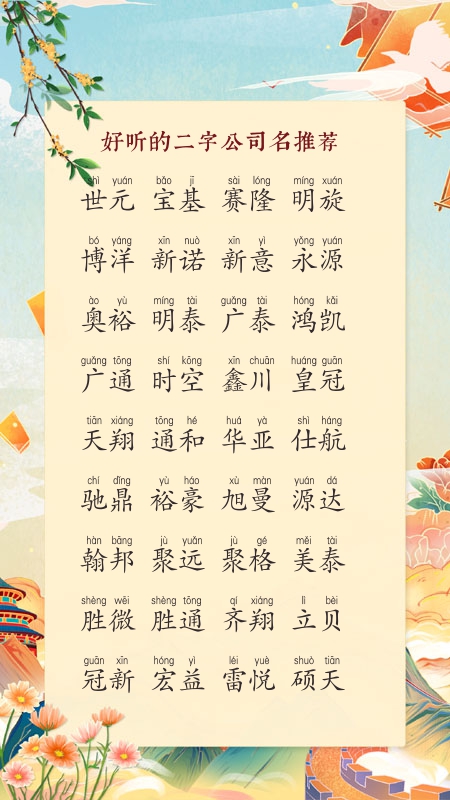 好听的二字公司名推荐
shì yuán bǎo jī sài lóng míng xuán
世元 宝基 赛隆 明旋
bó yáng xīn nuò xīn yì yǒng yuán
博洋 新诺 新意 永源
ào yù míng tài guǎng tài hóng kǎi
奥裕 明泰 广泰 鸿凯
guǎng tōng shí kōng xīn chuān huáng guān
广通 时空 鑫川 皇冠
tiān xiáng tōng hé huá yà shì háng
天翔 通和 华亚 仕航
chí dǐng yù háo xù màn yuán dá
驰鼎 裕豪 旭曼 源达
hàn bāng jù yuǎn jù gé měi tài
翰邦 聚远 聚格 美泰
shèng wēi shèng tōng qí xiáng lì bèi
胜微 胜通 齐翔 立贝
guān xīn hóng yì léi yuè shuò tiān
冠新 宏益 雷悦 硕天